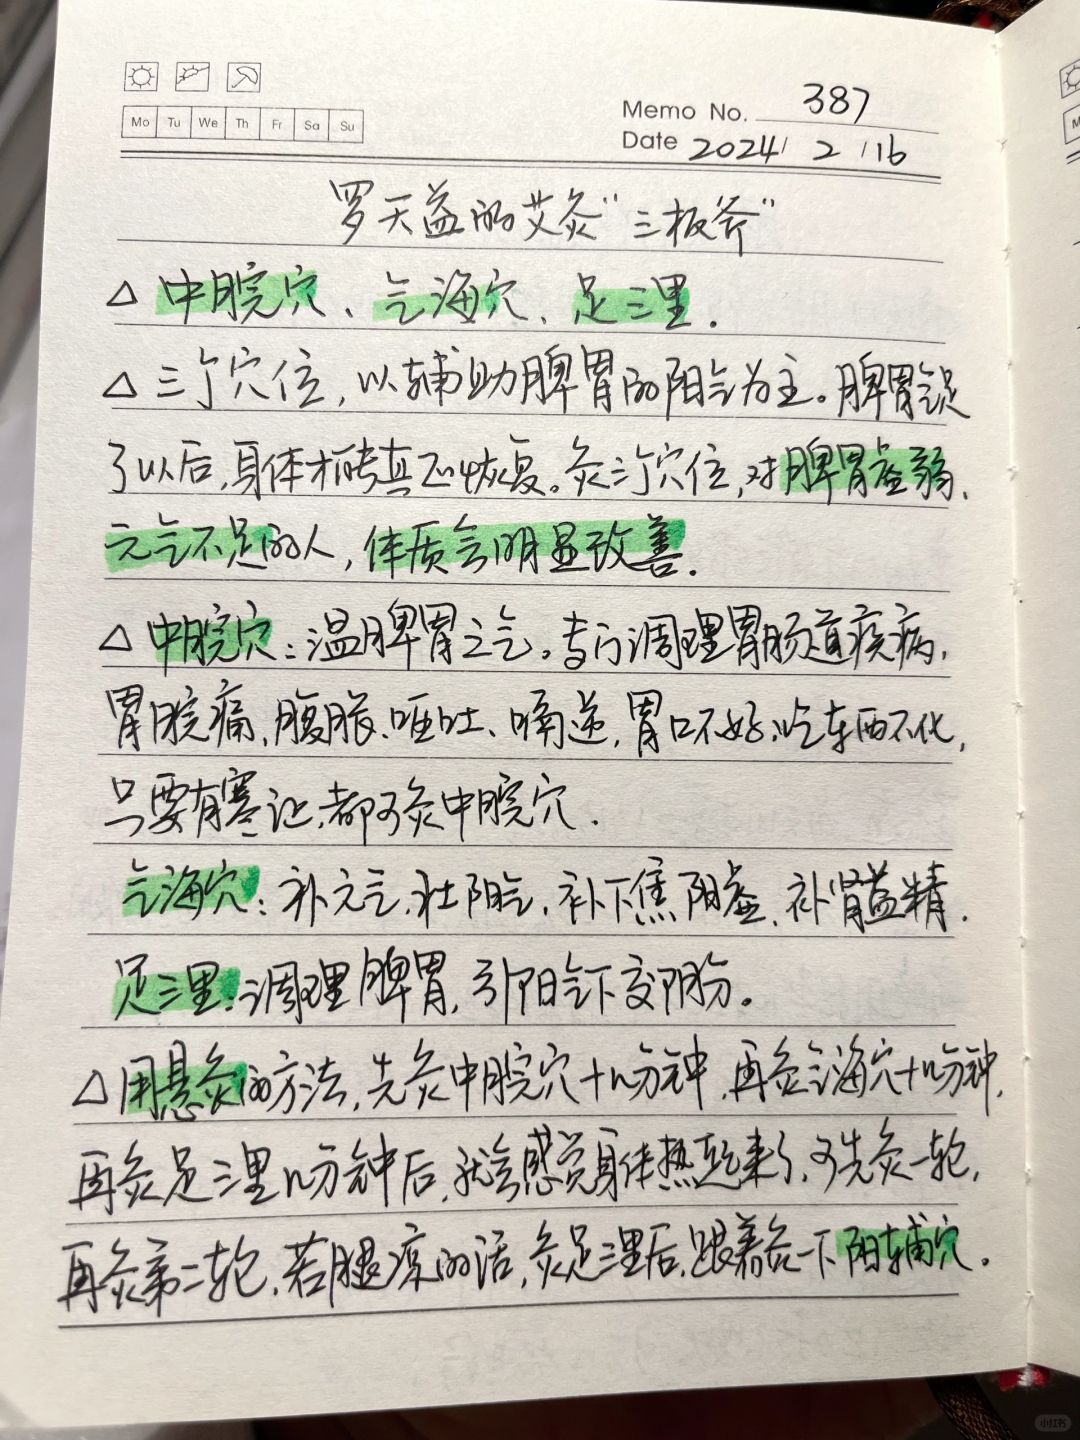 Mo Tu We Th Fr Sa Su
Memo No. 387
Date 2024 / 2 / 16
罗天益的艾灸"三板斧"
△ 中脘穴、气海穴、足三里.
△ 三个穴位,以辅助脾胃的阳气为主。脾胃气足
了以后,身体才能真正恢复。灸三个穴位,对脾胃虚弱、
元气不足的人,体质会明显改善.
△ 中脘穴:温脾胃之气。专门调理胃肠道疾病,
胃脘痛、腹胀、呕吐、嗝逆,胃口不好,吃东西不化,
只要有寒证,都可灸中脘穴.
气海穴:补元气,壮阳气,补下焦阳虚,补肾益精.
足三里:调理脾胃,引阳气下交阴分。
△用悬灸的方法,先灸中脘穴十几分钟,再灸气海穴十几分钟,
再灸足三里几分钟后,就会感觉身体热起来了,可先灸一轮,
再灸第二轮,若腿凉的话,灸足三里后,跟着灸一下阳辅穴。
小红书